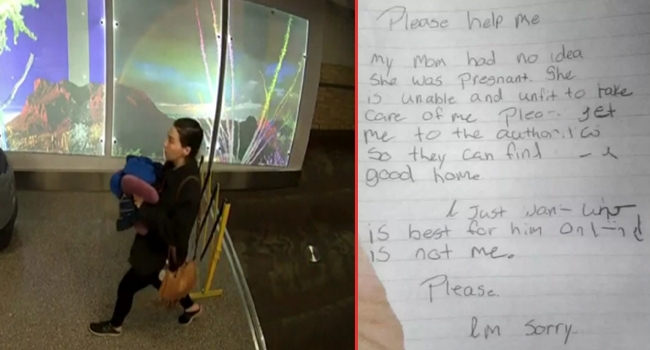 Please help me
My Mom had no idea
she was pregnant. She
is unable and unfit to take
care of me get
me to the authorities
so they can find
good home.
I Just
is best for him
is not me.
Please.
Im sorry